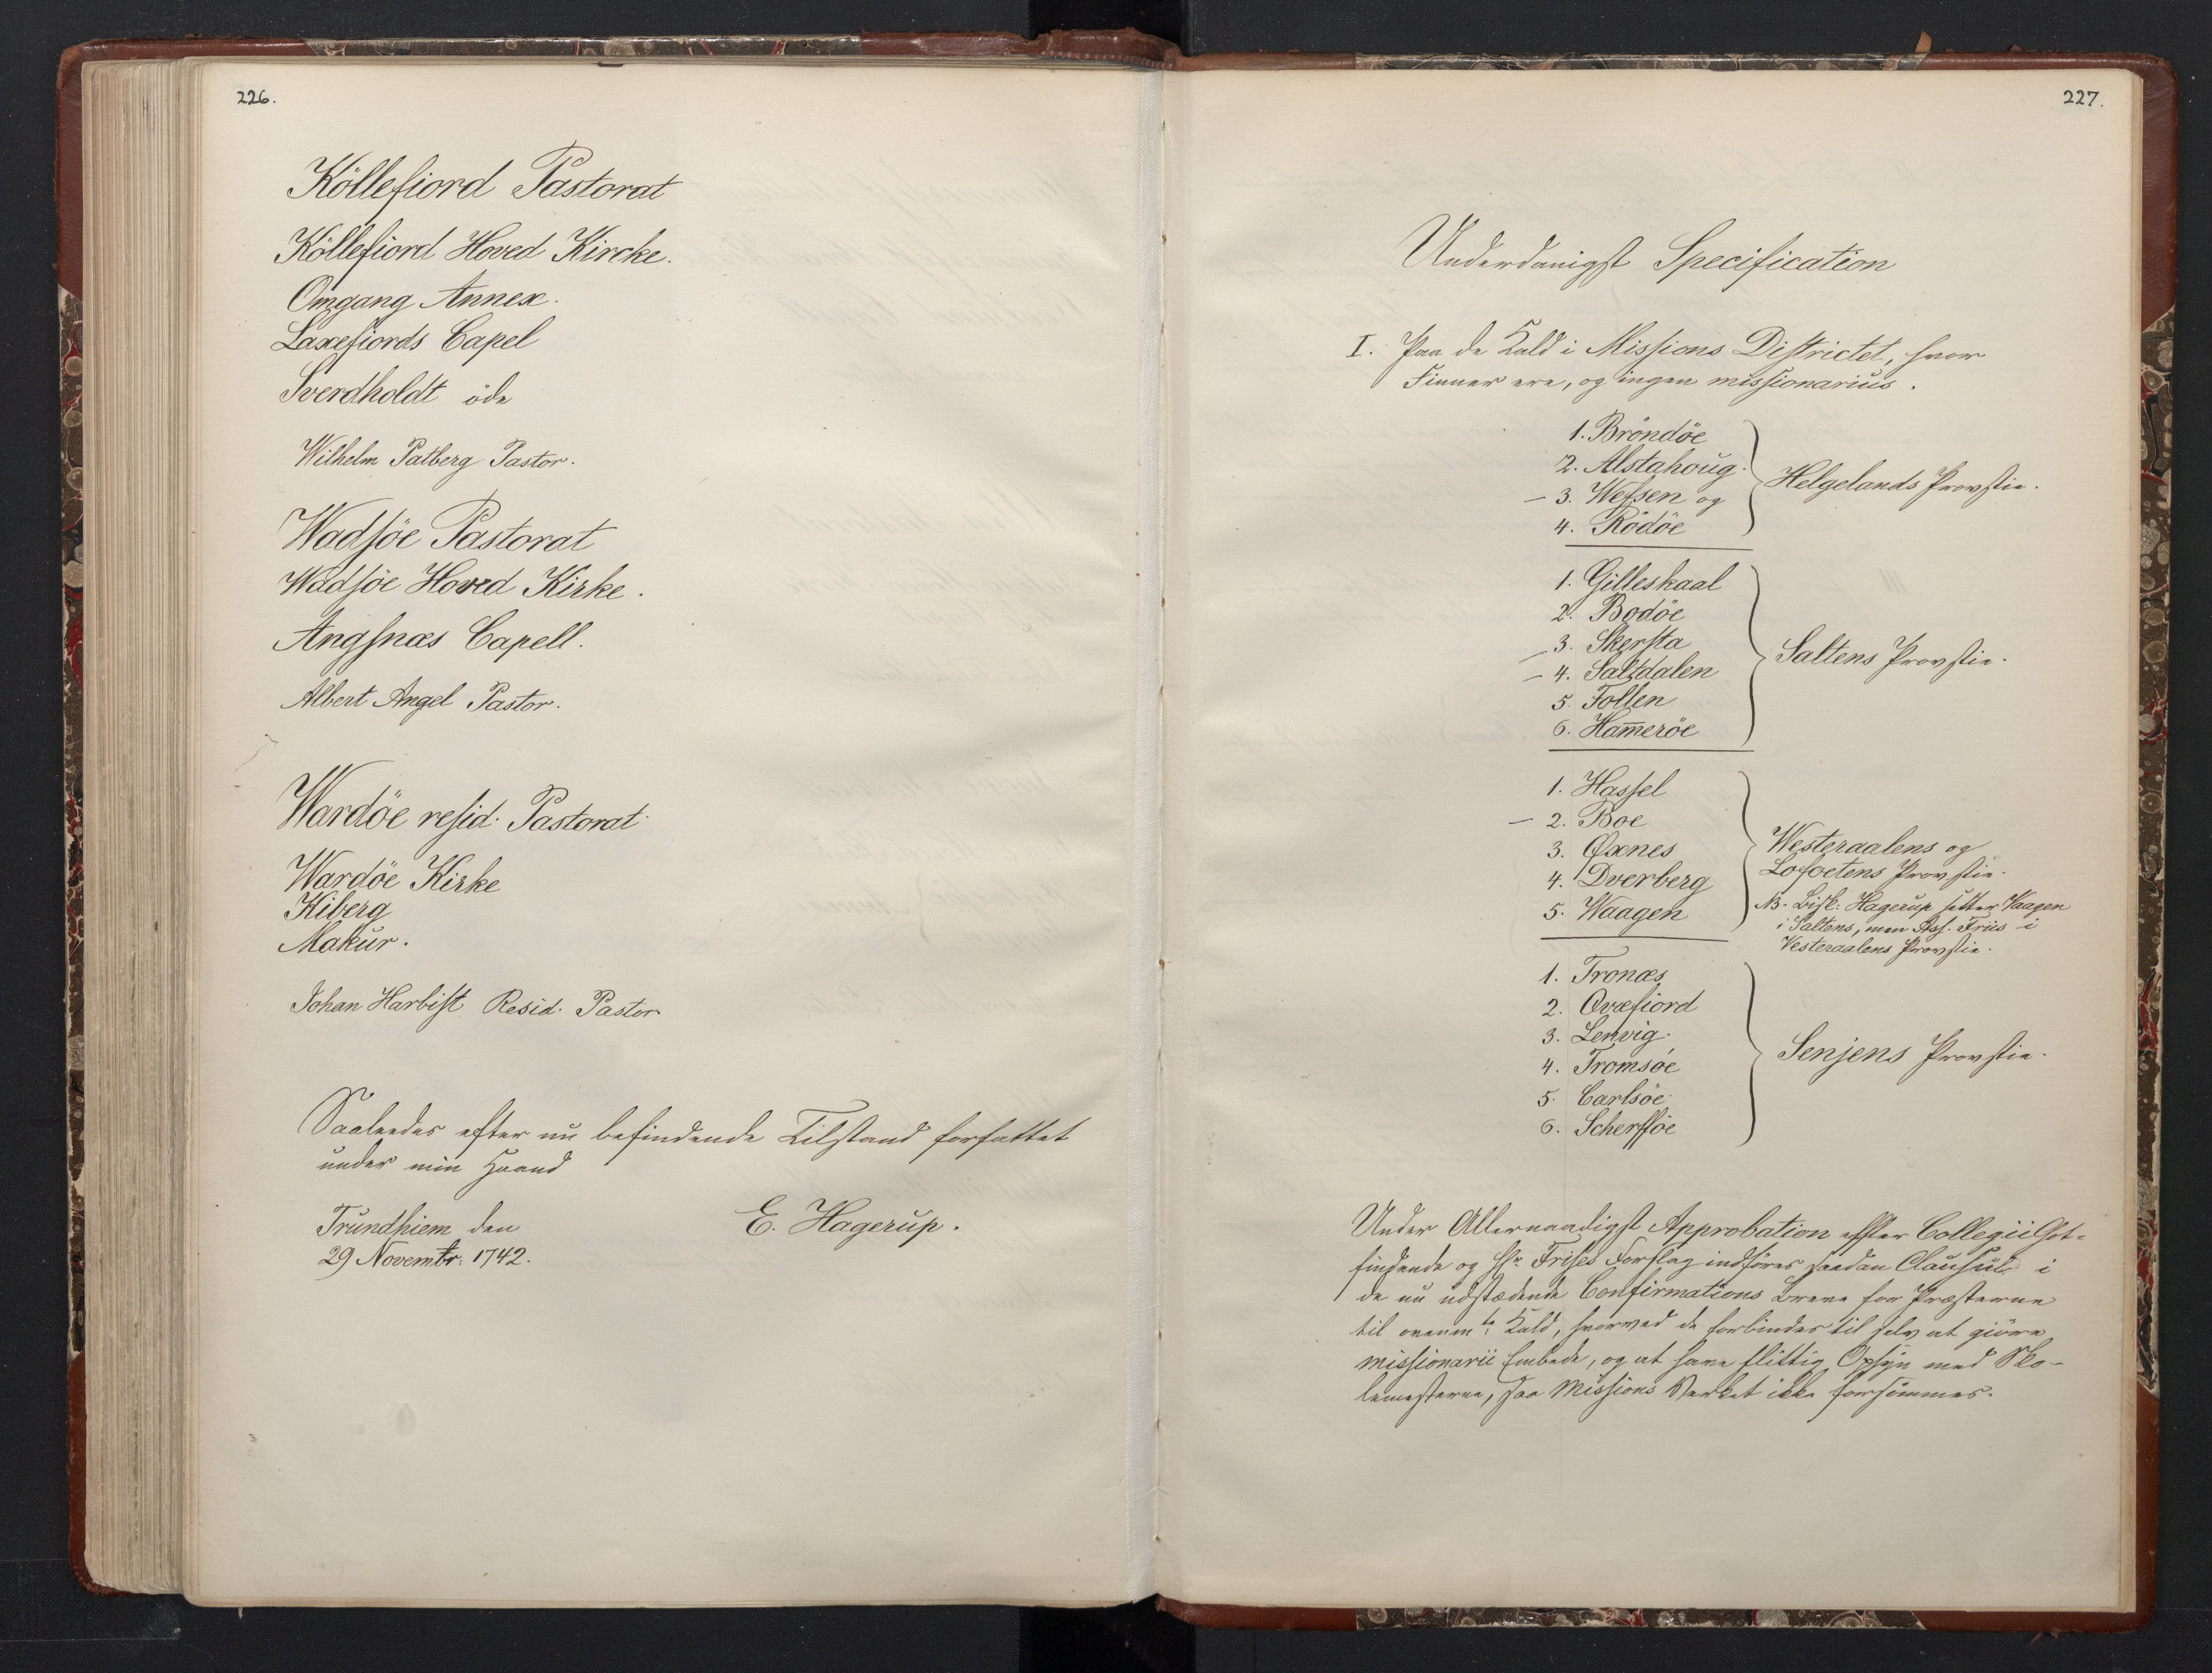 226.
Köllefiord Pastorat
Köllefiord Hoved Kircke.
Omgang Annex.
Laxefiords Capel
Sverdholdt öde
Wilhelm Patberg Pastor.
Wadsöe Pastorat
Wadsöe Hoved Kirke.
Angsnæs Capell.
Albert Angel Pastor.
Wardöe resid. Pastorat
Wardöe Kirke
Kiberg
Makur.
Johan Harbist Resid. Pastor
Saaledes efter nu befindende Tilstand forfattet
under min Haand
Trundhiem den
29 Novembr. 1742.
E. Hagerup.
227.
Underdanigst Specification
I. Paa de Kald i Missions Districtet, hvor
Finner ere, og ingen missionarius.
1. Bröndöe
2. Alstahoug.
– 3. Wefsen og
4. Rödöe
Helgelands Provstie.
1. Gilleskaal
2. Bodöe
– 3. Skersta
– 4. Saltdalen
5. Follen
6. Ham̄eröe
Saltens Provstie.
1. Hassel
– 2. Boe
3. Øxnes
4. Dverberg
5. Waagen
Westeraalens og
Lofoetens Provstie.
NB. Bisk: Hagerup setter Vaagen
i Saltens, men Ass. Friis i
Vesteraalens Provstie.
1. Tronæs
2. Qvæfiord
3. Lenvig.
4. Tromsöe
5. Carlsöe
6. Scherfföe
Senjens Provstie.
Under Allernaadigst Approbation efter Collegii Got-
findende og Hr. Friises Forslag indföres saadan Clausul i
de nu udstædende Confirmations Breve for Præsterne
til ovenm.te Kald, hvorved de forbindes til selv at giöre
missionarii Embede, og at have flittig Opsyn med Sko-
lemesterne, saa Missions Verket ikke forsömmes.